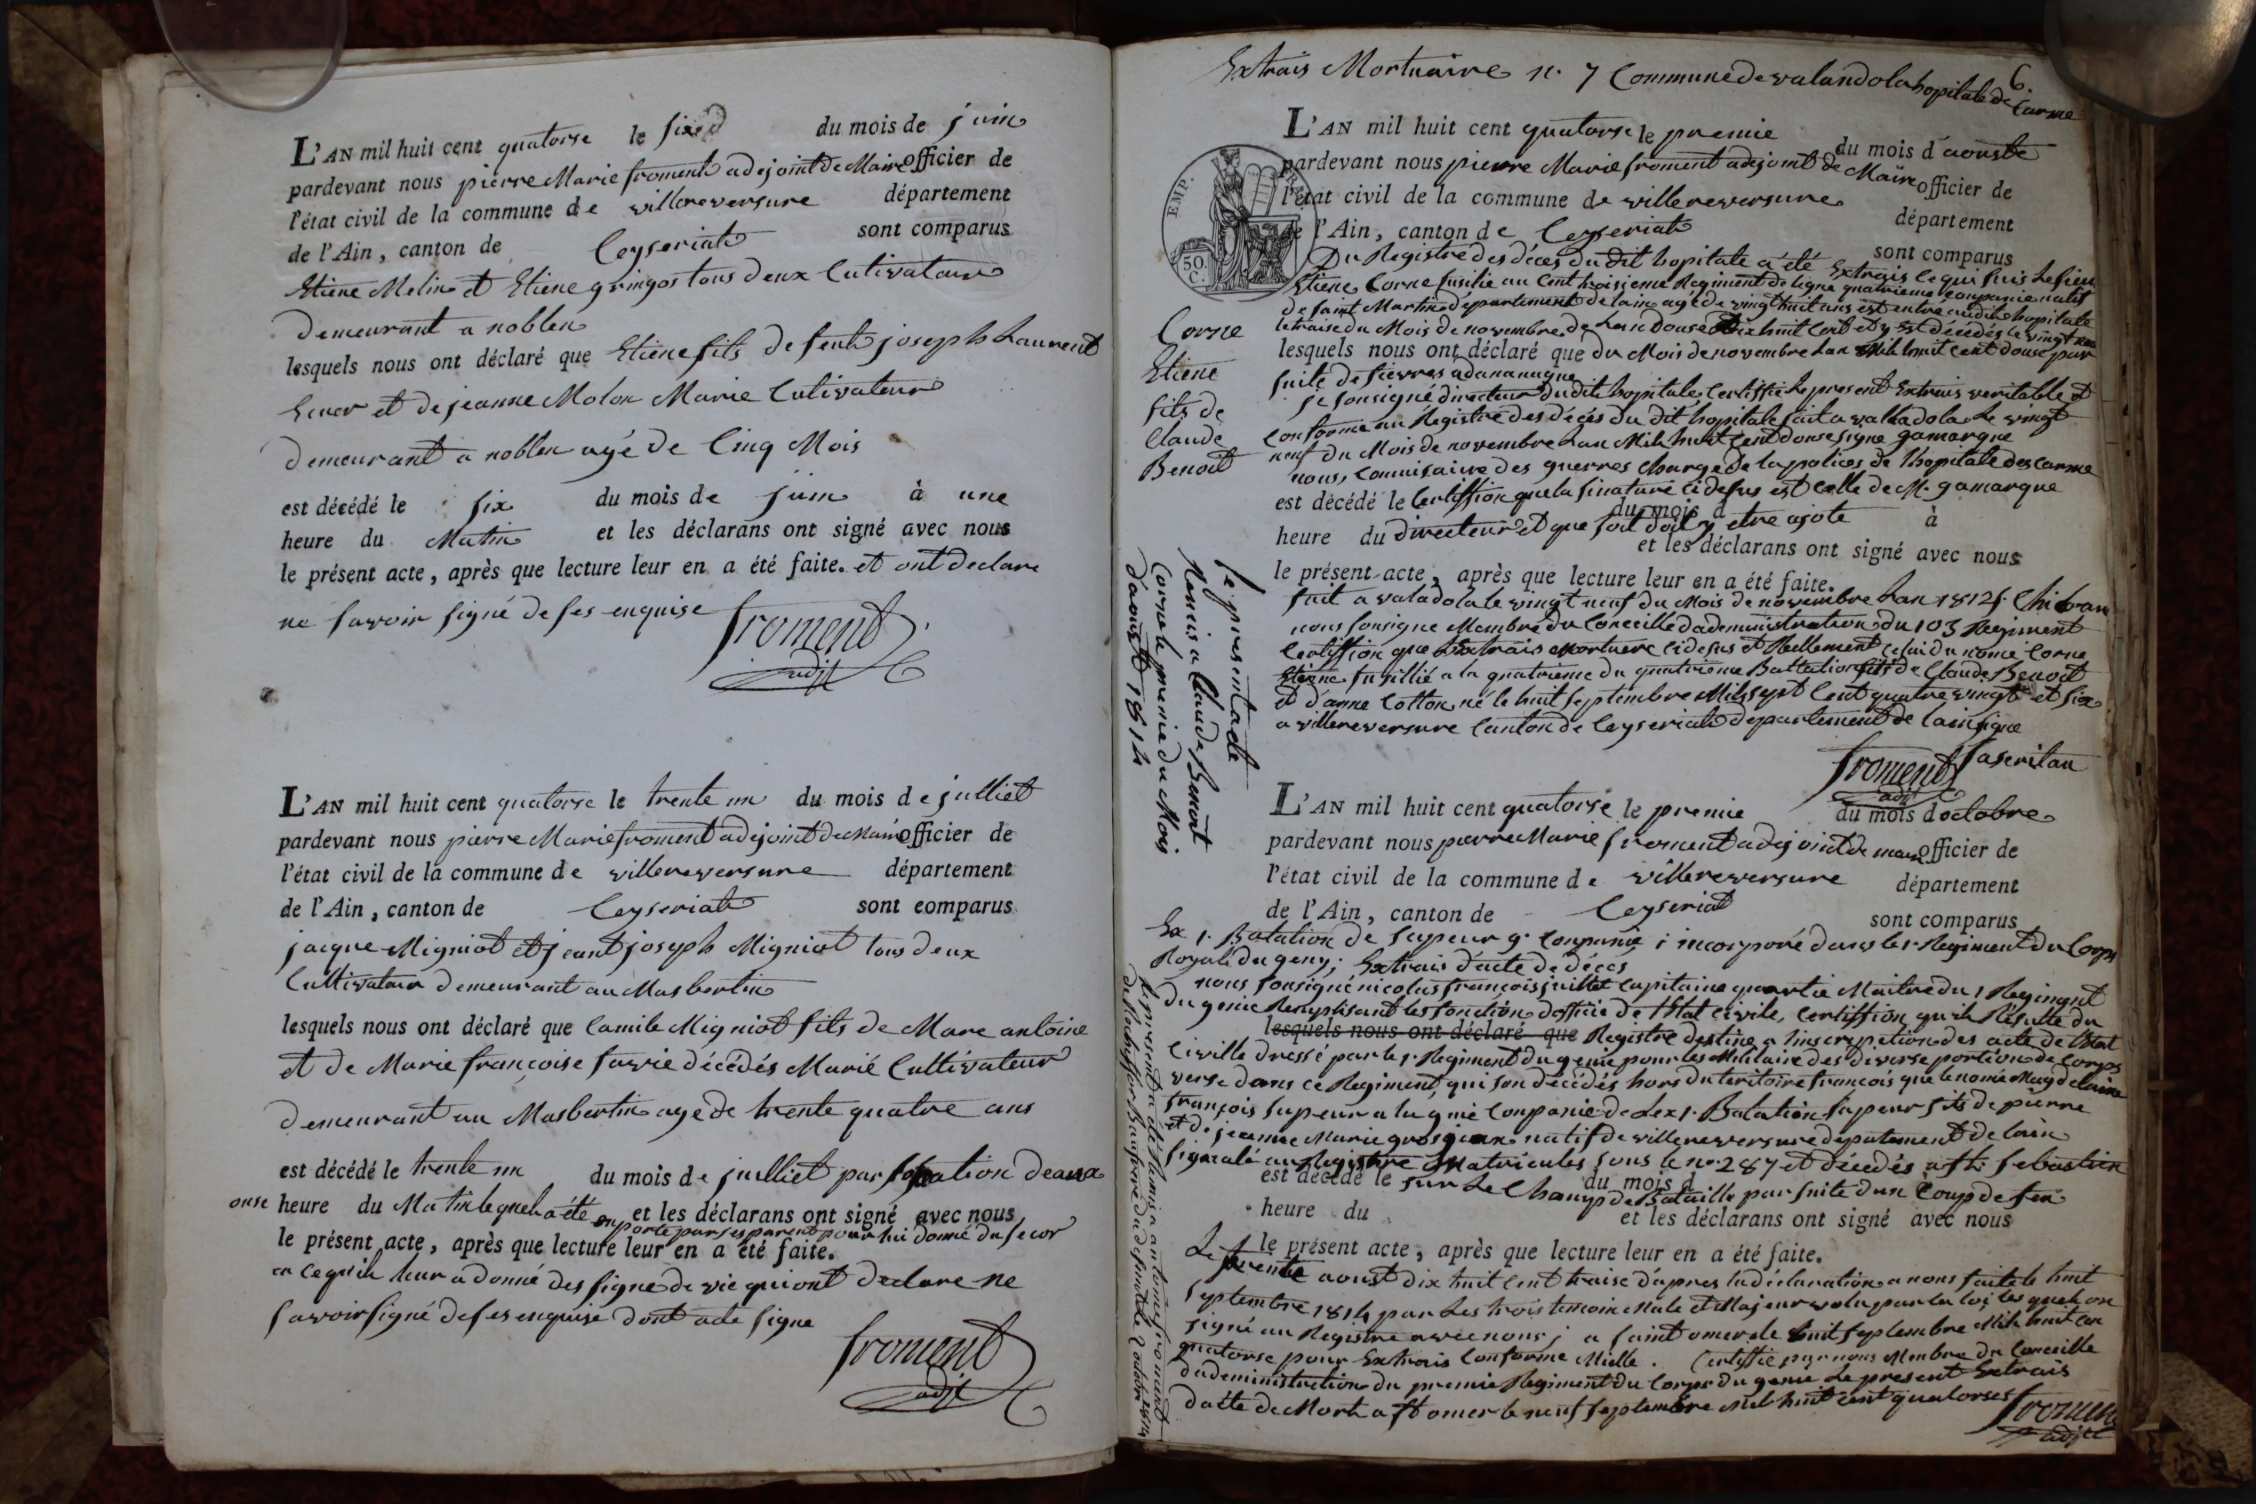 L'AN mil huit cent quatorse le six du mois de juin
pardevant nous pierre Marie froment adejoint de Maire officier de
l'état civil de la commune de villereversure département
de l'Ain, canton de Ceyseriat sont comparus
Etiene Melin et Etiene gringos tous deux Cutivateur
demeurant a noblen
lesquels nous ont déclaré que Etiene fils de feu joseph Laurent
et de jeanne Molon Marie Cutivateur
demeurant a noblen agé de Cinq Mois
est décédé le six du mois de juin à une
heure du Matin et les déclarans ont signé avec nous
le présent acte, après que lecture leur en a été faite. et ont declare
ne savoir signé de ses enquise froment
adjt
L'AN mil huit cent quatorse le trente un du mois de julliet
pardevant nous pierre Marie froment adejoint de Maire officier de
l'état civil de la commune de villereversure département
de l'Ain, canton de Ceyseriat sont comparus
jacque Migniot et jeant joseph Migniot tous deux
Cultivateur demeurant au Masbertin
lesquels nous ont déclaré que Camile Migniot fils de Marc antoine
et de Marie françoise favie décédés Marié Cultivateur
demeurant au Masbertin age de trente quatre ans
est décédé le trente un du mois de julliet par
onse heure du Matin lequel a été et les déclarans ont signé avec nous
emporté par ses parent pour lui donné du secor
le présent acte, après que lecture leur en a été faite.
en ce qu'il leur a donné des signe de vie qui ont declare ne
savoir signé de ses enquise dont acte signe
froment
adjt
6.
Extrais Mortuaire n. 7 Commune de valandola hopitale de Carme
L'AN mil huit cent quatorse le premie du mois d'aouste
pardevant nous pierre Marie froment adejoint de Maire officier de
l'état civil de la commune de villereversure département
de l'Ain, canton de Ceyseriat sont comparus
EMP.
50
C.
Du Registre des déces du dit hopitale a été Extrais ce qui suis Le sieur
Etiene Corne fusilie au Cent troisieme Regiment de ligne quatrieme Companie natif
de saint Martin département de lain agé de vingt huit ans est entré audit hopitale
le traise du Mois de novembre de Lan douse Dix huit Cent et y est décédés le vingt neu
Corne
Etiene
fils de
Claude
Benoit
lesquels nous ont déclaré que du Mois de novembre Lan Mil huit cent douse par
suite de fievres adanamique
je sousigné directeur du dit hopitale Certiffie Le present Extrais veritable et
Conforme au Registre des décés du dit hopitale fait a valladola Le vingt
neuf du Mois de novembre Lan Mil huit Cent douse signe gamarque
nous Commisaire des guerres Chargé de la polices de l'hopitale des Carme
est décédé le Certiffion que la sinature Cidesus est Celle de M. gamarque
du mois d à
heure du directeur et que foit doit y etre ajoté
et les déclarans ont signé avec nous
le présent acte, après que lecture leur en a été faite.
fait a valadola le vingt neuf du Mois de novembre Lan 1812
nous sousigne Membre du Conceille dadeministration du 103 Regiment
Certiffion que Lextrais Mortuere Cidesus et Réellement Celui du nomé Corne
Etiene fusillié a la quatrieme du quatrieme Battation fils de Claude Benoit
et d'anne Cotton né le huit septembre Mil sept Cent quatre vingt et six
a villereversure Canton de Ceyseriat departement de lain signe
froment
adjt
le present acte
Remis a Claude Benoit
Corne le premie du Mois
d'aoust 1814
L'AN mil huit cent quatorse le premie du mois d'octobre
pardevant nous pierre Marie froment adejoint de maire officier de
l'état civil de la commune de villereversure département
de l'Ain, canton de Ceyseriat sont comparus
Ex 1. Batation de sapeur 9. Companie ; incorporé dans le 1. Regiment du Corps
Royale du geny ; Extrais d'acte de décés
nous sousigné nicolas françois juillet Capitaine quartie Maitre du 1 Regiment
du genie Remplisant les fonction dofficie de l'Etat Civile, Certiffion qu'il Résulte du
lesquels nous ont déclaré que Registre destine a linscrpetion des acte de l'Etat
Civille dressé par le 1. Regiment du genie pour les Militaire des diverse portion de Corps
verse dans ce Regiment, qui son décédés hors du teritoire francois que le nomé Magdelaine
françois sapeur a la 9 mie Companie de Lex 1. Batation sapeur fils de pierre
et de jeanne Marie grosjean natif de villereversure departement de lain
signalé au Registre Matricules sous le no. 287 et décédés a St. Sebastien
est décédé le sur Le Champ de Bataille par suite dun Coup de feu
du mois d
heure du et les déclarans ont signé avec nous
le présent acte, après que lecture leur en a été faite.
Le trente aoust dix huit Cent traise d'apres la déclaration a nous faite le huit
septembre 1814 par Les trois temoin Male et Majeur voulu par la loi les quels on
signé au Registre avec nous ; a saint omer le huit septembre Mil huit Cen
quatorse pour Extrais Conforme Mielle. Certiffie par nous Menbre du Conceille
dadeministration du premie Regiment du Corps du genie Le present Extrais
d'acte de Mort a St omer le neuf septembre Mil huit Cent quatorses froment
adjt